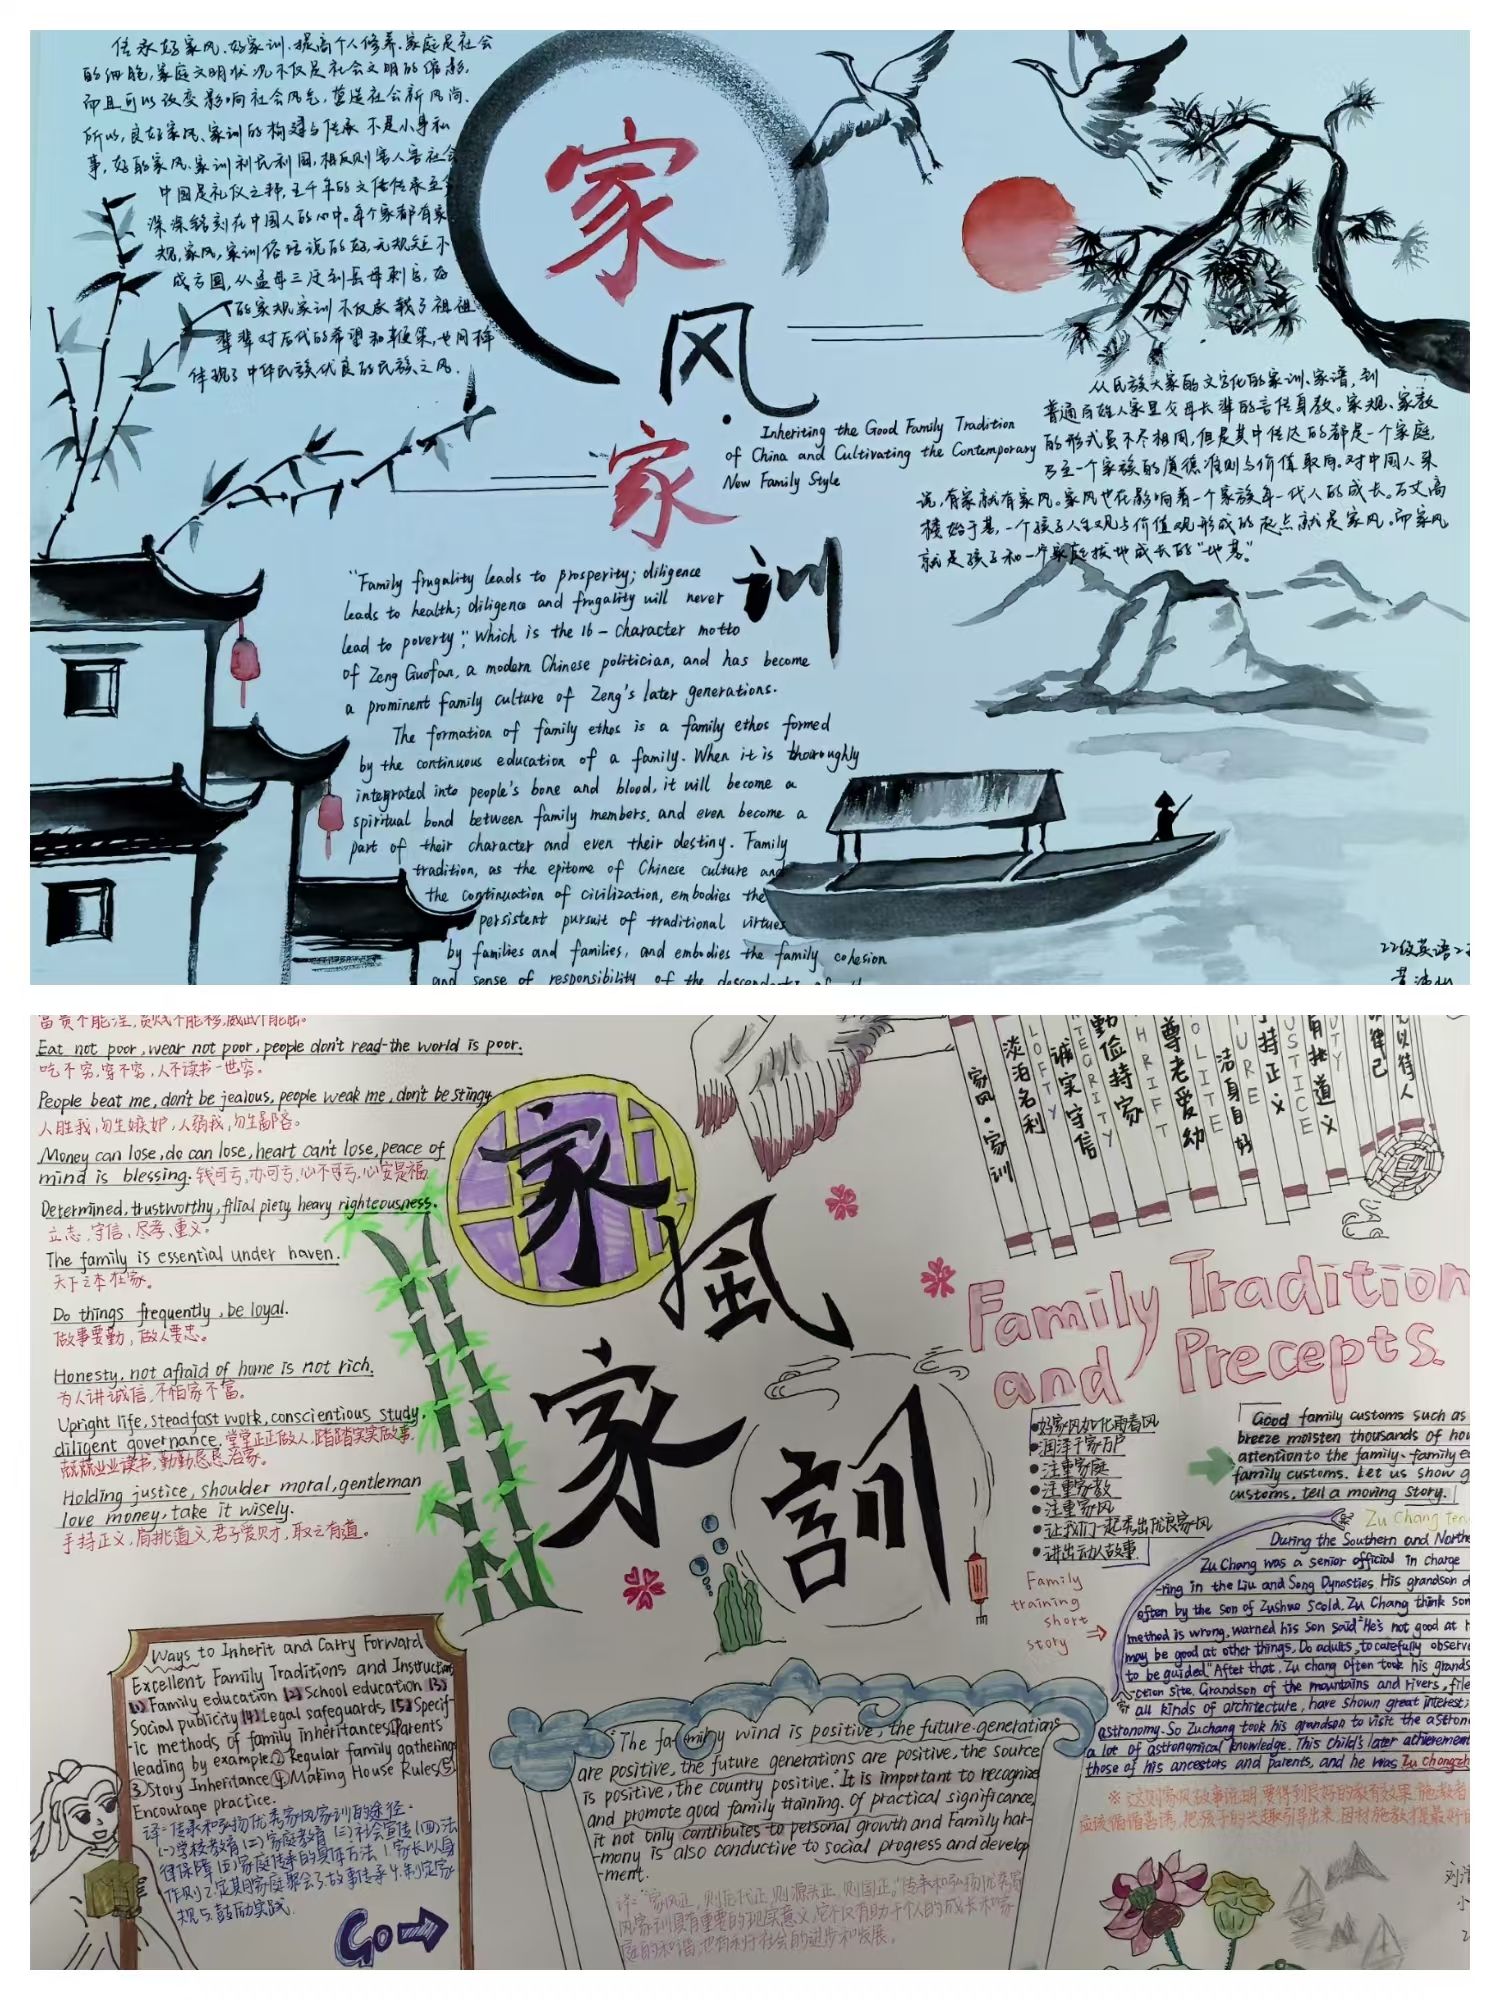 传承好家风、好家训、提高个人修养、家庭是社会
的细胞,家庭文明状况不仅是社会文明的缩影,
而且可以改变影响社会风气,营造社会新风尚、
所以,良好家风、家训的构建与传承不是小事私
事,好的家风、家训利民利国,相反则害人害社会
中国是礼仪之邦,五千年的文传传承至今
深深铭刻在中国人的心中。每个家都有家
规,家风,家训俗话说的好,无规矩不
成方圆,从孟母三迁到岳母刺字,好
的家规家训不仅承载了祖祖
辈辈对后代的希望和鞭策,也同样
体现了中华民族优良的民族之风.
家
风
·
家
训
Inheriting the Good Family Tradition
of China and Cultivating the Contemporary
New Family Style
从民族大家的文字化的家训、家谱,到
普通百姓人家里父母长辈的言传身教。家规、家教
的形式虽不尽相同,但是其中传达的都是一个家庭,
乃至一个家族的道德准则与价值取向。对中国人来
说,有家就有家风。家风也在影响着一个家族每一代人的成长。万丈高
楼始于基,一个孩子人生观与价值观形成的起点就是家风。而家风
就是孩子和一个家庭拔地成长的"地基"。
"Family frugality leads to prosperity; diligence
leads to health; diligence and frugality will never
lead to poverty", which is the 16-character motto
of Zeng Guofan, a modern Chinese politician, and has become
a prominent family culture of Zeng's later generations.
The formation of family ethos is a family ethos formed
by the continuous education of a family. When it is thoroughly
integrated into people's bone and blood, it will become a
spiritual bond between family members, and even become a
part of their character and even their destiny. Family
tradition, as the epitome of Chinese culture and
the continuation of civilization, embodies the
persistent pursuit of traditional virtues
by families and families, and embodies the family cohesion
and sense of responsibility of the descendants of the
22级英语2
富贵不能淫,贫贱不能移,威武不能屈。
Eat not poor, wear not poor, people don't read-the world is poor.
吃不穷,穿不穷,人不读书一世穷。
People beat me, don't be jealous, people weak me, don't be stingy
人胜我,勿生嫉妒,人弱我,勿生鄙吝。
Money can lose, do can lose, heart can't lose, peace of
mind is blessing. 钱可亏,亦可亏,心不可亏,心安是福
Determined, trustworthy, filial piety, heavy righteousness.
立志,守信、尽孝、重义。
The family is essential under haven.
天下之本在家。
Do things frequently, be loyal.
做事要勤,做人要忠。
Honesty, not afraid of home is not rich.
为人讲诚信,不怕家不富。
Upright life, steadfast work, conscientious study,
diligent governance. 堂堂正正做人,踏踏实实做事,
兢兢业业读书,勤勤恳恳治家。
Holding justice, shoulder moral, gentleman
love money, take it wisely.
手持正义,肩挑道义,君子爱财,取之有道。
家
風
家
訓
家风·家训
淡泊名利
LOFTY
诚实守信
NTEGRITY
勤俭持家
THRIFT
尊老爱幼
OLITE
洁身自好
URE
持正义
USTICE
肩挑道义
UTY
律己
以待人
Family Tradition
and Precepts.
好家风如化雨春风
润泽千家万户
注重家庭
注重家教
注重家风
让我们一起秀出优良家风
讲出动人故事
Good family customs such as
breeze moisten thousands of hou
attention to the family, family e
family customs. Let us show g
customs, tell a moving story.
Family
training
short
story
Zu Chang
During the Southern and Northe
Zu Chang was a senior official in charge
-ring in the Liu and Song Dynasties His grandson d
often by the son of Zushuo scold. Zu Chang think son
method is wrong, warned his son said "He's not good at r
may be good at other things. Do adults, to carefully observe
to be guided." After that, Zu chang often took his grands
-ction site. Grandson of the mountains and rivers, file
all kinds of architecture, have shown great interest;
astronomy. So Zuchang took his grandson to visit the astron
a lot of astronomical knowledge. This child's later achievement
those of his ancestors and parents, and he was Zu chongzh
※ 这则家风故事说明,要得到良好的教育效果,施教者
应该循循善诱,把孩子的兴趣引导出来,因材施教才是最好的
Ways to Inherit and Carry Forward
Excellent Family Traditions and Instruction
(1) Family education (2) School education (3)
Social publicity (4) Legal safeguards (5) Specif-
-ic methods of family inheritances ①Parents'
leading by example ② Regular family gathering
③ Story Inheritance ④ Making House Rules ⑤
Encourage practice.
译:传承和弘扬优秀家风家训的途径:
(一)学校教育 (二)家庭教育 (三)社会宣传 (四)法
律保障 (五)家庭传承的具体方法 1.家长以身
作则 2.定期家庭聚会 3.故事传承 4.制定家
规 5.鼓励实践.
Go
"The family wind is positive, the future generations
are positive, the future generations are positive, the source
is positive, the country positive." It is important to recognize
and promote good family training. Of practical significance,
it not only contributes to personal growth and Family har-
-mony is also conductive to social progress and develop
-ment.
译:"家风正,则后代正,则源头正,则国正。"传承和弘扬优秀家
风家训具有重要的现实意义,它不仅有助于个人的成长和家
庭的和谐,也有利于社会的进步和发展。